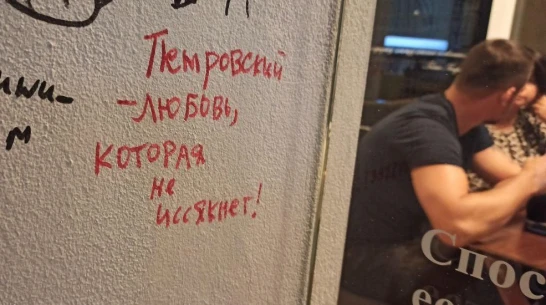 Петровский
-ЛЮБОВЬ,
КОТОРАЯ
не
иссякнет!
м
Спос